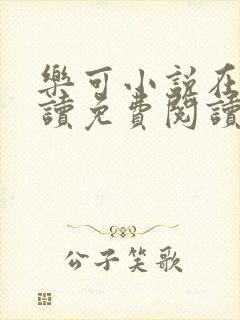 樂可小說在
讀免費閱讀
公子笑歌